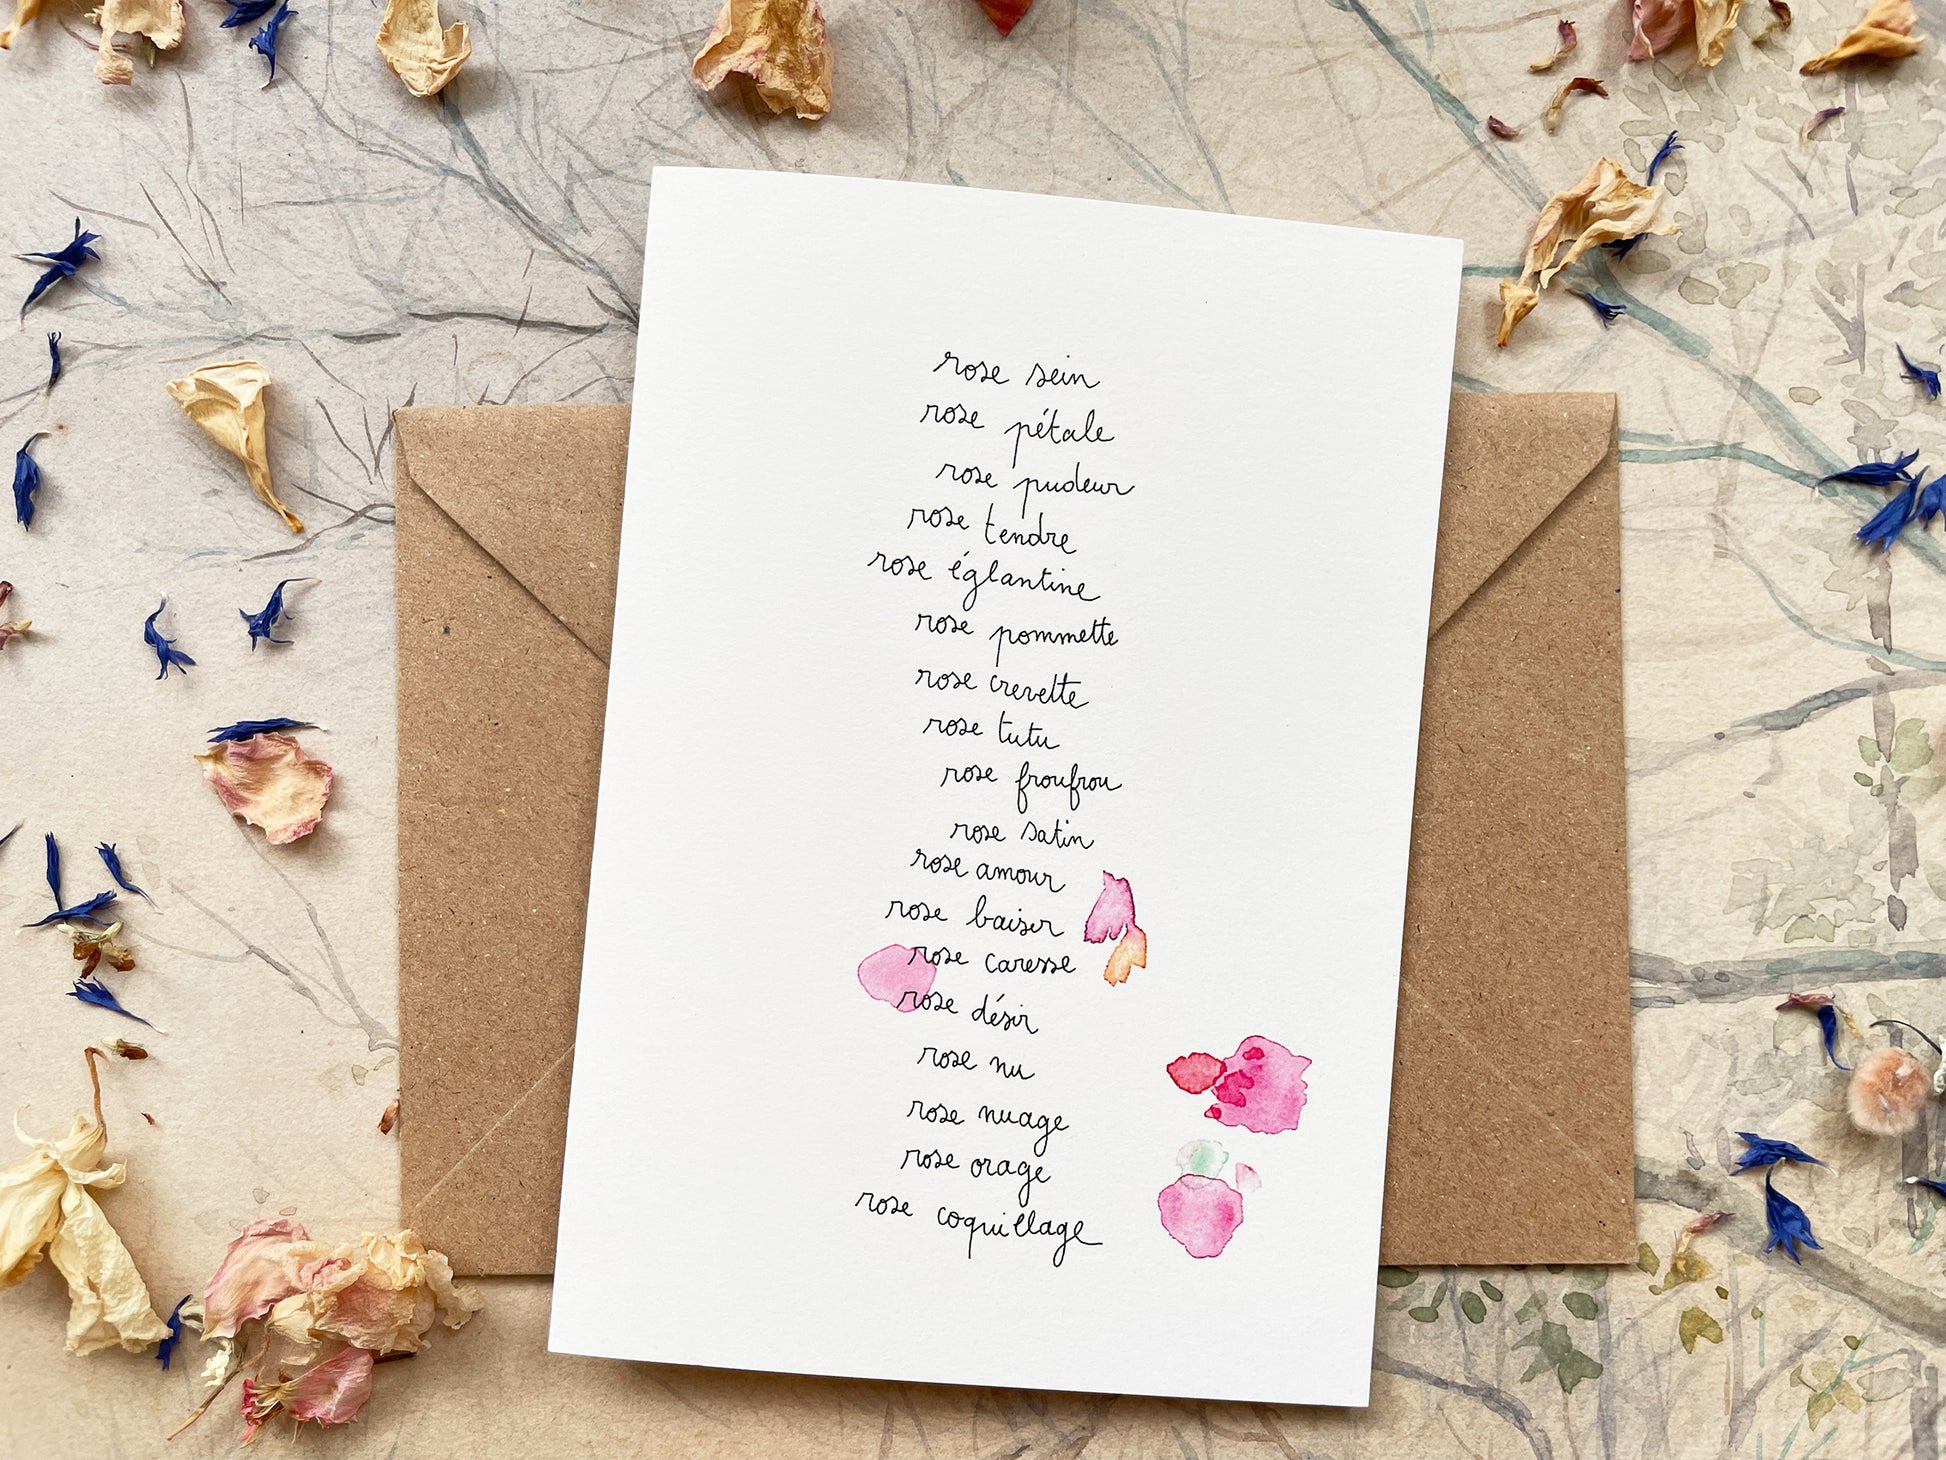 rose sein
rose pétale
rose pudeur
rose tendre
rose églantine
rose pommette
rose crevette
rose tutu
rose froufrou
rose satin
rose amour
rose baiser
rose caresse
rose désir
rose nu
rose nuage
rose orage
rose coquillage